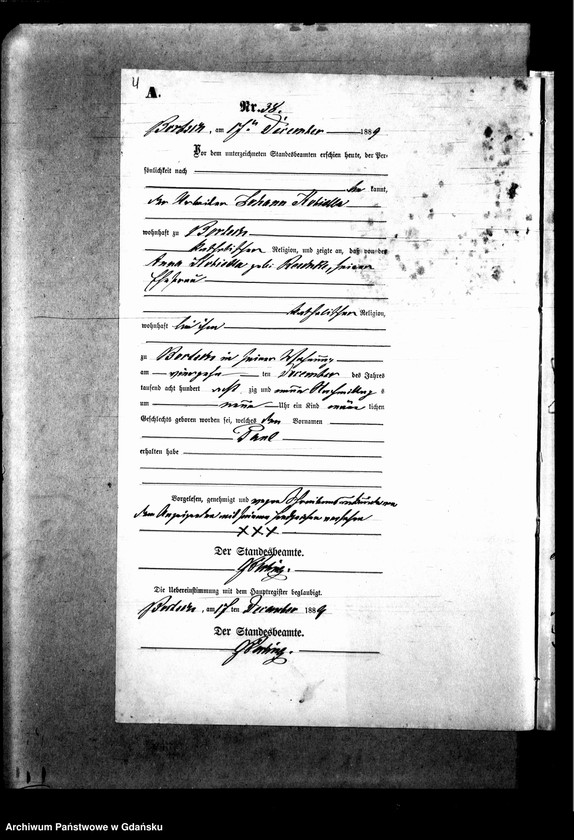 4
A.
Nr. 38.
am 17ten December 1889
Vor dem unterzeichneten Standesbeamten erschien heute, der Per-
sönlichkeit nach
be kannt,
der Arbeiter Johann
wohnhaft zu
katholischer Religion, und zeigte an, daß von der
Anna geb. seiner
Ehefrau
katholischer Religion,
wohnhaft bei ihm
zu in seiner Wohnung
am vierzehn ten December des Jahres
tausend acht hundert acht zig und neun Nachmittag s
um neun Uhr ein Kind männ lichen
Geschlechts geboren worden sei, welches den Vornamen
Paul
erhalten habe
Vorgelesen, genehmigt und wegen Schreibensunkunde von
dem Anzeigenden mit seinem Handzeichen versehen
XXX
Der Standesbeamte.
Die Uebereinstimmung mit dem Hauptregister beglaubigt.
am 17 ten December 1889
Der Standesbeamte.
Archiwum Państwowe w Gdańsku